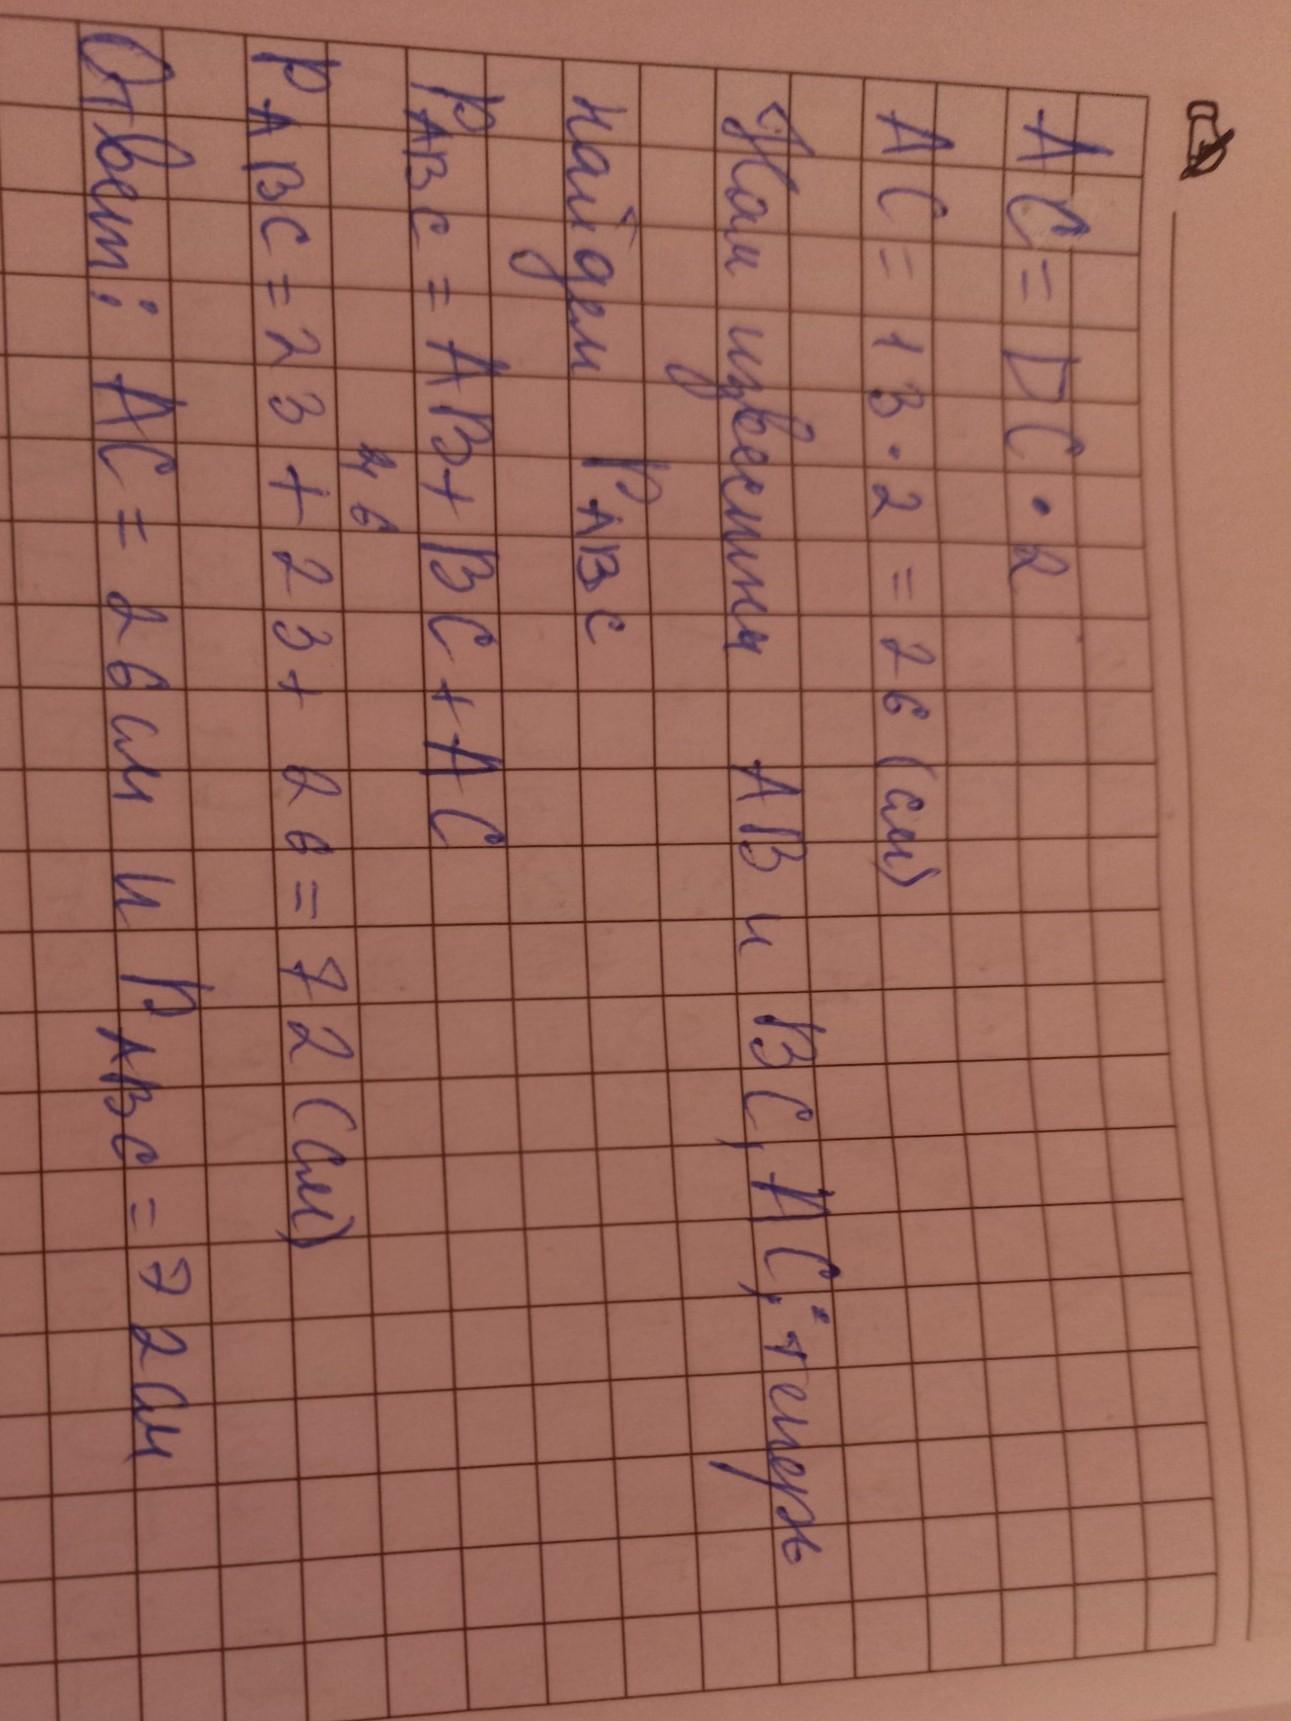 AC = DC · 2
AC = 13 · 2 = 26 (см)
Нам известны AB и BC, AC, теперь
найдем P ABC
P ABC = AB + BC + AC
46
P ABC = 23 + 23 + 26 = 72 (см)
Ответ: AC = 26 см и P ABC = 72 см